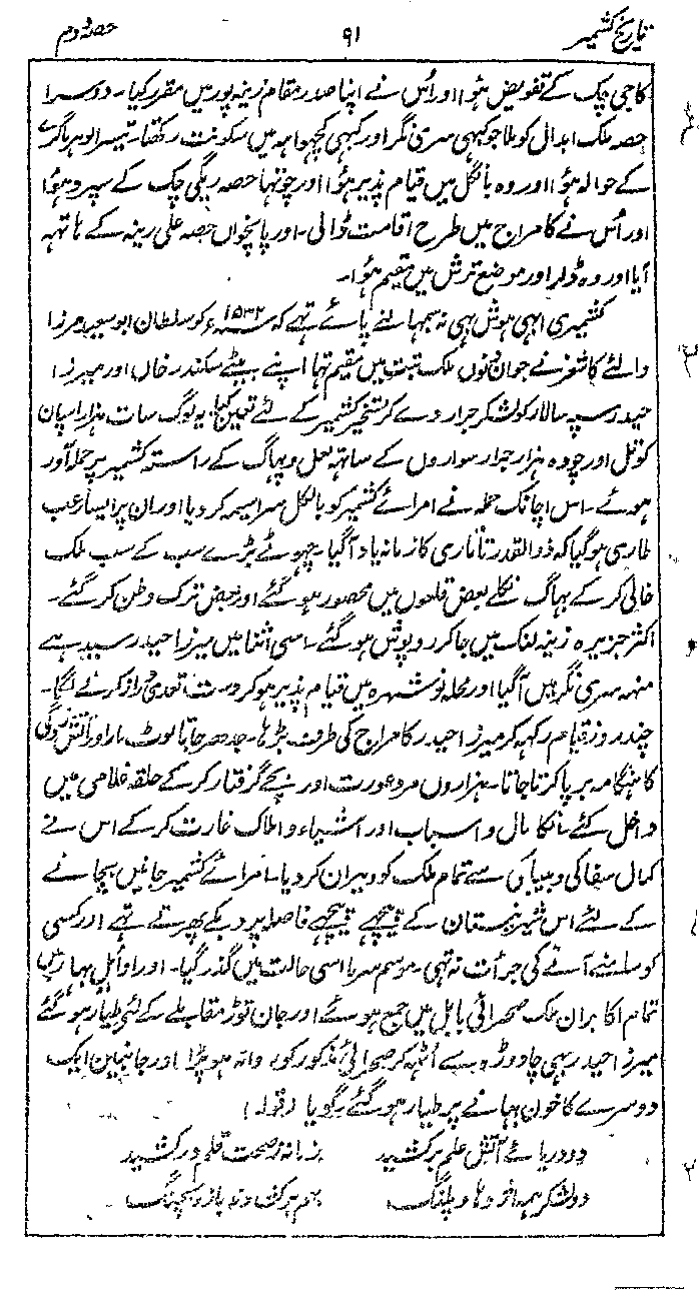 تاریخ کشمیر ۹۱ حصہ دوم
کاجی چک کے تفویض ہؤا اور اُس نے اپنا صدر مقام زینہ پور میں مقرر کیا۔ دوسرا
حصہ ملک ابدال کو ملا جو کبھی سری نگر اور کبھی کچہوامہ میں سکونت رکھتا۔ تیسرا لوہر ماگرے
کے حوالہ ہؤا اور وہ بانگل میں قیام پذیر ہؤا اور چوتہا حصہ ریگی چک کے سپرد ہؤا
اور اُس نے کامراج میں طرح اقامت ڈالی۔ اور پانچواں حصہ علی رینہ کے ہاتہہ
آیا اور وہ ڈلر اور موضع ترش میں مقیم ہؤا۔
کشمیری ابہی ہوش بہی نہ سمبہالنے پائے تہے کہ ۱۵۳۲ء کو سلطان ابو سعید مرزا
والئے کاشغر نے جو ان دنوں ملک تبت میں مقیم تہا اپنے بیٹے سکندر خاں اور میرزا
حیدر سپہ سالار کو لشکر جرار دے کر تسخیر کشمیر کے لئے تعین کیا۔ یہ لوگ سات ہزار اسپان
کوتل اور چودہ ہزار جرار سواروں کے ساتہہ لعل و پہاگ کے راستہ کشمیر پر حملہ آور
ہوئے۔ اس اچانک حملہ نے امرائے کشمیر کو بالکل سراسیمہ کر دیا اور ان پر ایسا رعب
طاری ہو گیا کہ ذوالقدر تاتاری کا زمانہ یاد آگیا۔ چہوٹے بڑے سب کے سب ملک
خالی کر کے بہاگ نکلے بعض قلعوں میں محصور ہو گئے اور بعض ترک وطن کر گئے۔
اکثر جزیرہ زینہ لنک میں جا کر روپوش ہو گئے۔ اسی اثنا میں میرزا حیدر سیدہے
منہہ سری نگر میں آگیا اور محلہ نوشہرہ میں قیام پذیر ہو کر دست تعدی دراز کرنے لگا۔
چند روز قیام رکہہ کر میرزا حیدر کامراج کی طرف بڑہا۔ جدہر جاتا لوٹ مار اور آتش زدگی
کا ہنگامہ برپا کرتا جاتا۔ ہزاروں مرد عورت اور بچے گرفتار کر کے حلقہ غلامی میں
داخل کئے۔ انکا مال و اسباب اور اشیاء و املاک غارت کر کے اس نے
کمال سفاکی و بیباکی سے تمام ملک کو ویران کر دیا۔ امرائے کشمیر جانیں بچانے
کے لئے اس شیر نیستان کے پیچہے پیچہے فاصلہ پر دبکے پہرتے تہے اور کسی
کو سامنے آنے کی جرأت نہ تہی۔ موسم سرما اسی حالت میں گذر گیا۔ اور اوائل بہار میں
تمام اکابران ملک صحرائی بابل میں جمع ہوئے اور جان توڑ مقابلے کے لئی طیار ہو گئے
میرزا حیدر بہی چاڈورہ سے اُٹہہ کر صحرائی مذکور کو روانہ ہو پڑا اور جانبین ایک
دوسرے کا خون بہانے پر طیار ہو گئے۔ گویا (قولہ)
دو دریائے آتش علم برکشید زمانہ ز صحت قلم درکشید
دو لشکر ہمہ اژدہا و پلنگ بہم برکف و تہ بازو بچنگ